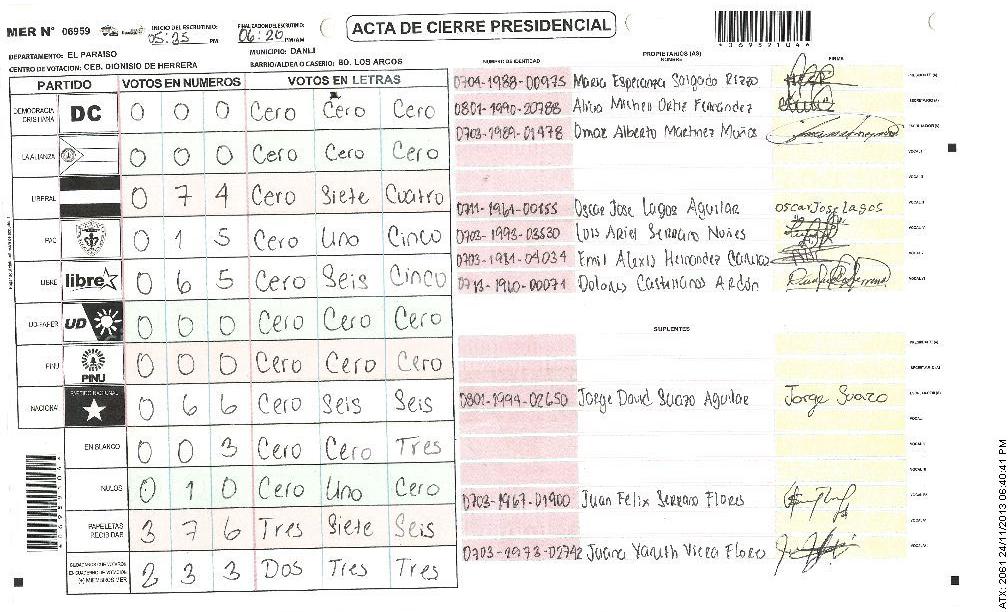 MER N° 06959
INICIO DEL ESCRUTINIO: 05:25 PM
FINALIZACION ESCRUTINIO: 06:20 PM/AM
ACTA DE CIERRE PRESIDENCIAL
DEPARTAMENTO: EL PARAISO
MUNICIPIO: DANLI
CENTRO DE VOTACION: CEB. DIONISIO DE HERRERA
BARRIO/ALDEA O CASERIO: BO. LOS ARCOS
PARTIDO VOTOS EN NUMEROS VOTOS EN LETRAS
DEMOCRACIA CRISTIANA DC 0 0 0 Cero Cero Cero
LA ALIANZA 0 0 0 Cero Cero Cero
LIBERAL 0 7 4 Cero Siete Cuatro
PAC 0 1 5 Cero Uno Cinco
LIBRE libre 0 6 5 Cero Seis Cinco
UD-FAPER UD 0 0 0 Cero Cero Cero
PINU PINU 0 0 0 Cero Cero Cero
NACIONAL PARTIDO NACIONAL 0 6 6 Cero Seis Seis
EN BLANCO 0 0 3 Cero Cero Tres
NULOS 0 1 0 Cero Uno Cero
PAPELETAS RECIBIDAS 3 7 6 Tres Siete Seis
CIUDADANOS QUE VOTARON EN CUADERNO DE VOTACION (+) MIEMBROS MER 2 3 3 Dos Tres Tres
PROPIETARIOS (AS)
NUMERO DE IDENTIDAD NOMBRE FIRMA
0704-1988-00975 Maria Esperanza Salgado Rizzo
0801-1990-20788 Alicia Michell Ortiz Fernandez
0703-1989-01478 Omar Alberto Martinez Muñoz
0711-1961-00155 Oscar Jose Lagos Aguilar oscar Jose Lagos
0703-1993-03530 Luis Ariel Serrano Nuñes
0703-1981-04034 Emil Alexis Hernandez
0713-1960-00071 Dolores Castellanos Ardón
SUPLENTES
0801-1994-02650 Jorge David Suazo Aguilar Jorge Suazo
0703-1967-01900 Juan Felix Serrano Flores
0703-1973-02742 Juana Yaruth Viera Flores
ATX: 2061 24/11/2013 06:40:41 PM